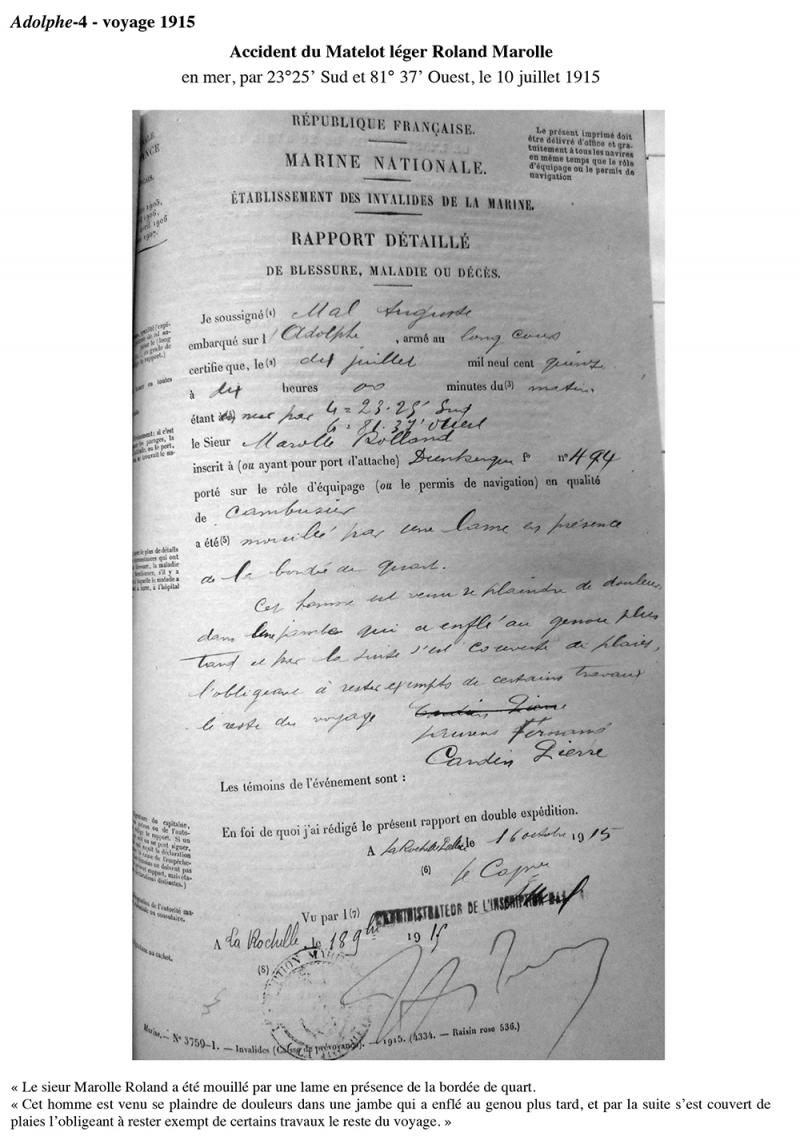 Adolphe-4 - voyage 1915
Accident du Matelot léger Roland Marolle
en mer, par 23°25' Sud et 81° 37' Ouest, le 10 juillet 1915
RÉPUBLIQUE FRANÇAISE.
MARINE NATIONALE.
ÉTABLISSEMENT DES INVALIDES DE LA MARINE.
RAPPORT DÉTAILLÉ
DE BLESSURE, MALADIE OU DÉCÈS.
Le présent imprimé doit
être délivré d'office et gra-
tuitement à tous les navires
en même temps que le rôle
d'équipage ou le permis de
navigation
Je soussigné (1) Mal Auguste
embarqué sur l'Adolphe, armé au long cours
certifie que, le (2) dix juillet mil neuf cent quinze
à dix heures 00 minutes du (3) matin.
étant (4) mer par L = 23.25' Sud
G = 81.37' Ouest
le Sieur Marolle Rolland
inscrit à (ou ayant pour port d'attache) Dunkerque f° n° 494
porté sur le rôle d'équipage (ou le permis de navigation) en qualité
de Cambusier
a été (5) mouillé par une lame en présence
de la bordée de quart.
Cet homme est venu se plaindre de douleurs
dans une jambe qui a enflé au genou plus
tard et par la suite s'est couverte de plaies,
l'obligeant à rester exempts de certains travaux
le reste du voyage
Laurens Fernand
Cardin Pierre
Les témoins de l'événement sont :
En foi de quoi j'ai rédigé le présent rapport en double expédition.
A La Rochelle le 16 octobre 1915
(6) Le Capne
Vu par l (7) L'ADMINISTRATEUR DE L'INSCRIPTION
A La Rochelle, le 18 9bre 1915
(8)
Marine. — N° 3759-1. — Invalides (Caisse de prévoyance). — 1915. (4334. — Raisin rose 536.)
« Le sieur Marolle Roland a été mouillé par une lame en présence de la bordée de quart.
« Cet homme est venu se plaindre de douleurs dans une jambe qui a enflé au genou plus tard, et par la suite s'est couvert de
plaies l'obligeant à rester exempt de certains travaux le reste du voyage. »